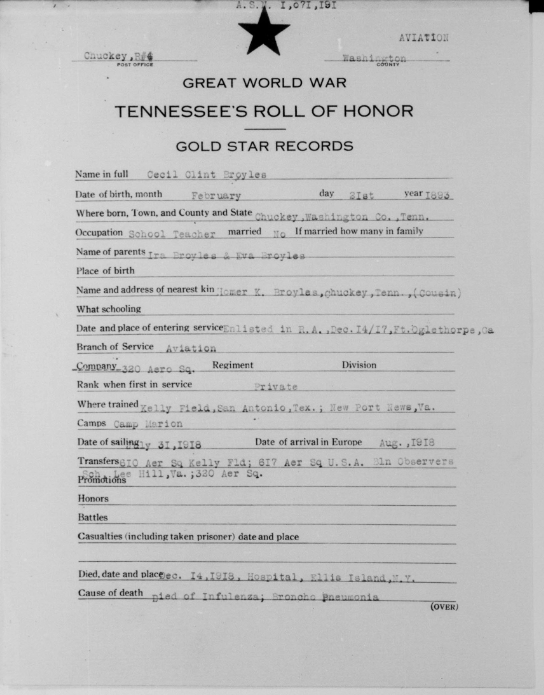 A.S.N. 1,071,191
AVIATION
Chuckey, R#4 Washington
POST OFFICE COUNTY
GREAT WORLD WAR
TENNESSEE'S ROLL OF HONOR
GOLD STAR RECORDS
Name in full Cecil Clint Broyles
Date of birth, month February day 21st year 1893
Where born, Town, and County and State Chuckey,Washington Co.,Tenn.
Occupation School Teacher married No If married how many in family
Name of parents Ira Broyles & Eva Broyles
Place of birth
Name and address of nearest kin Homer K. Broyles,chuckey,Tenn.,(Cousin)
What schooling
Date and place of entering service Enlisted in R.A.,Dec.14/17,Ft.Oglethorpe,Ga
Branch of Service Aviation
Company 320 Aero Sq. Regiment Division
Rank when first in service Private
Where trained Kelly Field,San Antonio,Tex.; New Port News,Va.
Camps Camp Merion
Date of sailing July 31,1918 Date of arrival in Europe Aug.,1918
Transfers 610 Aer Sq Kelly Fld; 617 Aer Sq U.S.A. Bln Observers
Sch. Lee Hill,Va.;320 Aer Sq.
Promotions
Honors
Battles
Casualties (including taken prisoner) date and place
Died, date and place Dec. 14,1918, Hospital, Ellis Island,N.Y.
Cause of death pied of Infulenza; Broncho Pneumonia
(OVER)